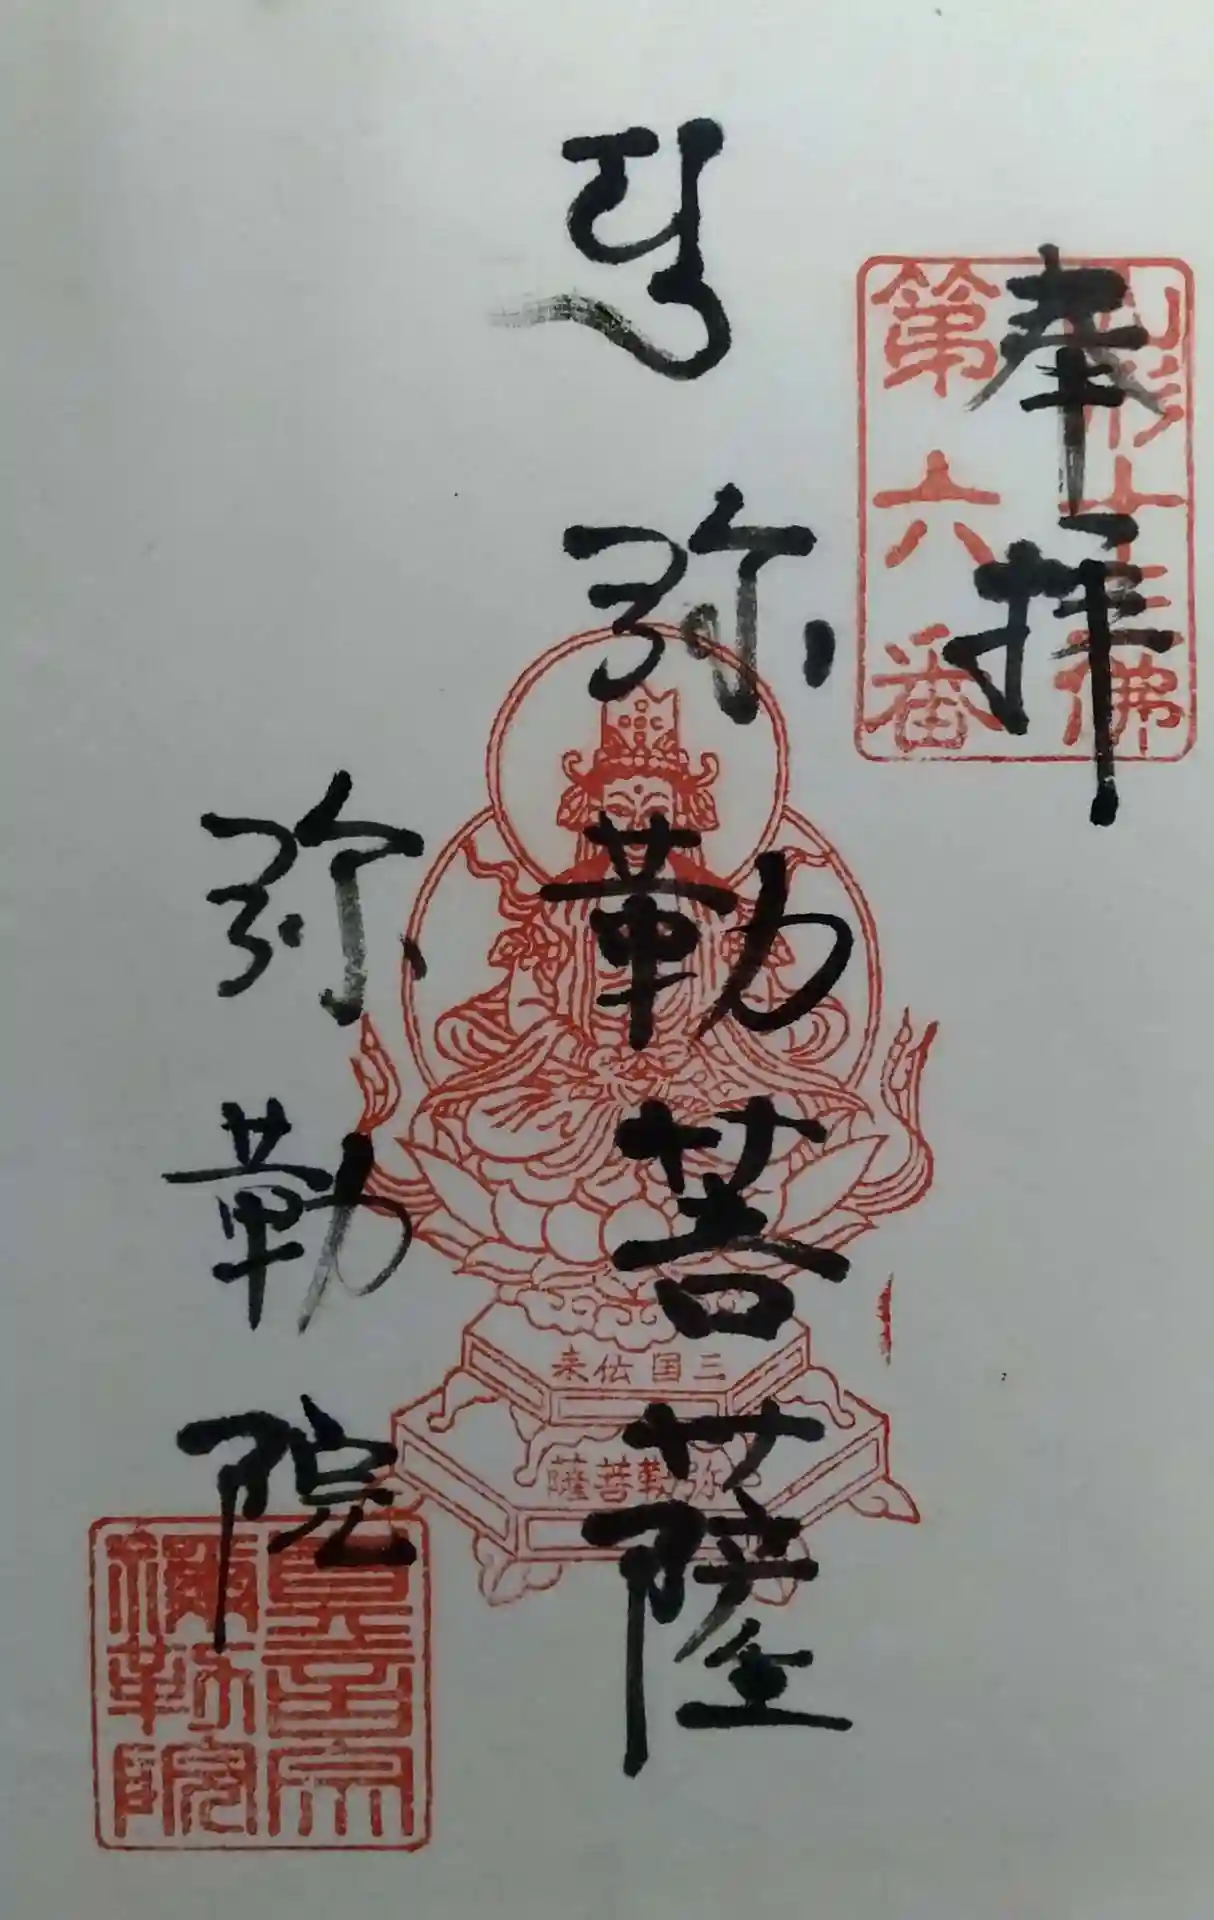 奉拝
山形十三佛
第六番
𑖧𑖲
弥勒菩薩
三国伝来
弥勒菩薩
弥勒院
真言宗
彌勒院